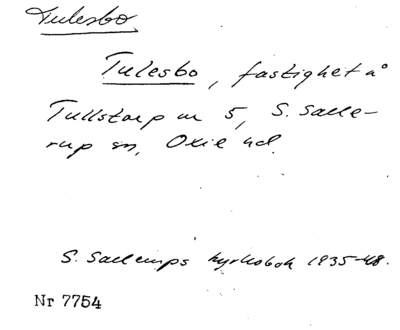 Tulesbo
Tulesbo, fastighet å
Tullstorp nr 5, S. Salle-
rup sn, Oxie hd.
S. Sallerups kyrkobok 1835-48.
Nr 7754